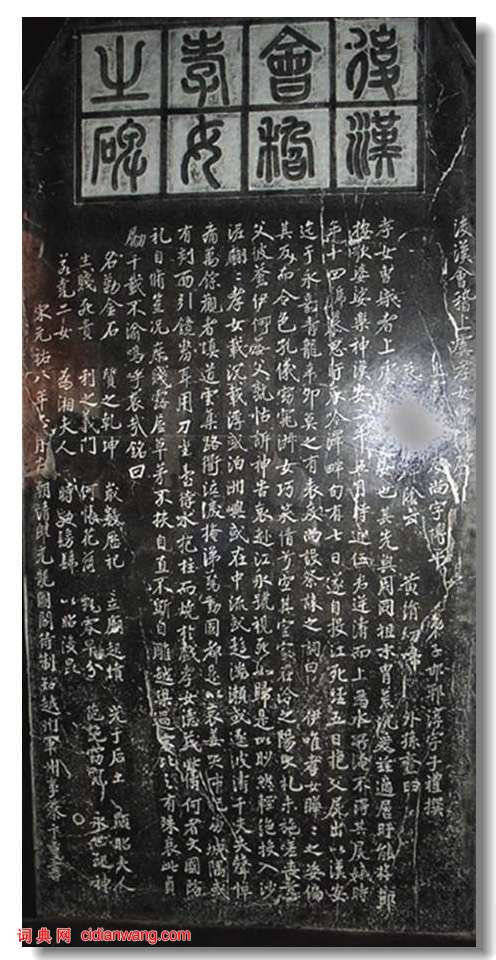 後漢
會稽
孝女
之碑
後漢會稽上虞孝女
尚字博平 弟子邯鄲淳字子禮撰
題云 黃絹幼婦 外孫齏臼
孝女曹娥者上虞也其先與周同祖末冑荒沉爰茲適居盱能撫節
按歌婆娑樂神漢安二年五月時迎伍君逆濤而上為水所淹不得其屍娥時
年十四號慕思盱哀吟澤畔旬有七日遂自投江死經五日抱父屍出以漢安
迄于永嘉青龍辛卯莫之有表度尚設祭誄之詞曰 伊唯孝女曄曄之姿偏
其反而令色孔儀窈窕淑女巧笑倩兮宜其室家在洽之陽大禮未施嗟喪慈
父彼蒼伊何無父孰怙訴神告哀赴江永號視死如歸是以眇然輕絕投入沙
泥翩翩孝女載沉載浮或泊洲嶼或在中流或趨湍瀨或逐波濤千夫失聲悼
痛萬餘觀者填道雲集路衢泣淚掩涕驚動國都是以哀姜哭市杞崩城隅或
有剋面引鏡剺耳用刀坐臺待水抱柱而燒於戲孝女德茂此儔何者大國防
禮自脩豈況庶賤露屋草茅不扶自直不斲自雕越梁過宋比之有殊哀此貞
勵千載不渝嗚呼哀哉銘曰
名勒金石 質之乾坤 歲數曆祀 立廟起墳 光于后土 顯昭夫人
生賤死貴 利之義門 何悵花落 飄零早分 葩艷窈窕 永世配神
若堯二女 為湘夫人 時效髣髴 以昭後昆
宋元祐八年正月左朝請郎充龍圖閣待制知越州軍州事蔡卞重書
词典网 cidianwang.com